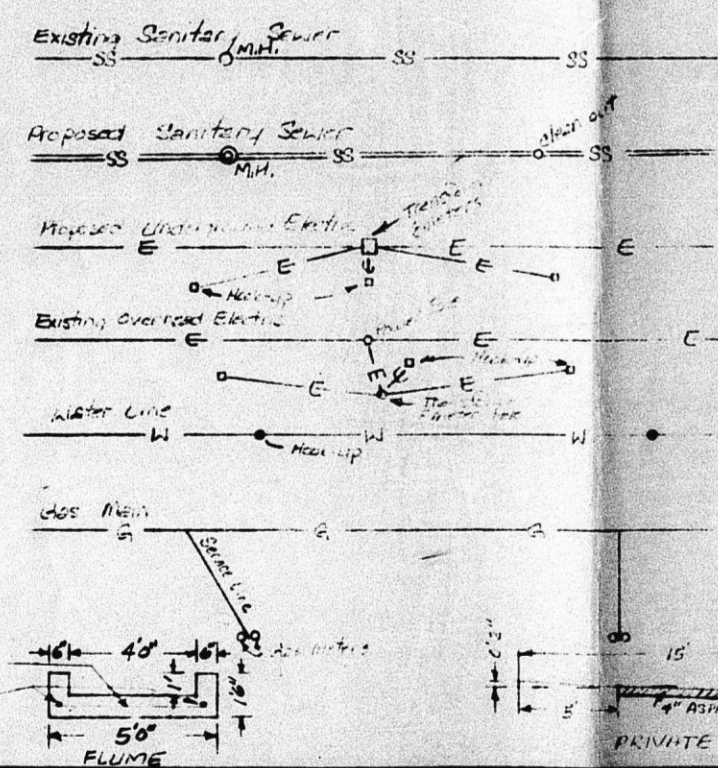 Existing Sanitary Sewer
SS M.H. SS SS
Proposed Sanitary Sewer
SS M.H. SS clean out SS
Proposed Underground Electric
E E E
E E E
Hook-up
Existing Overhead Electric
E E E
E E E E
Hook-up
Water Line
W W W
Hook-up
Gas Main
G G G
Service Line
Gas Meters
6" 4'0" 6"
1' 1'6"
5'0"
FLUME
15'
5'
4"
PRIVATE